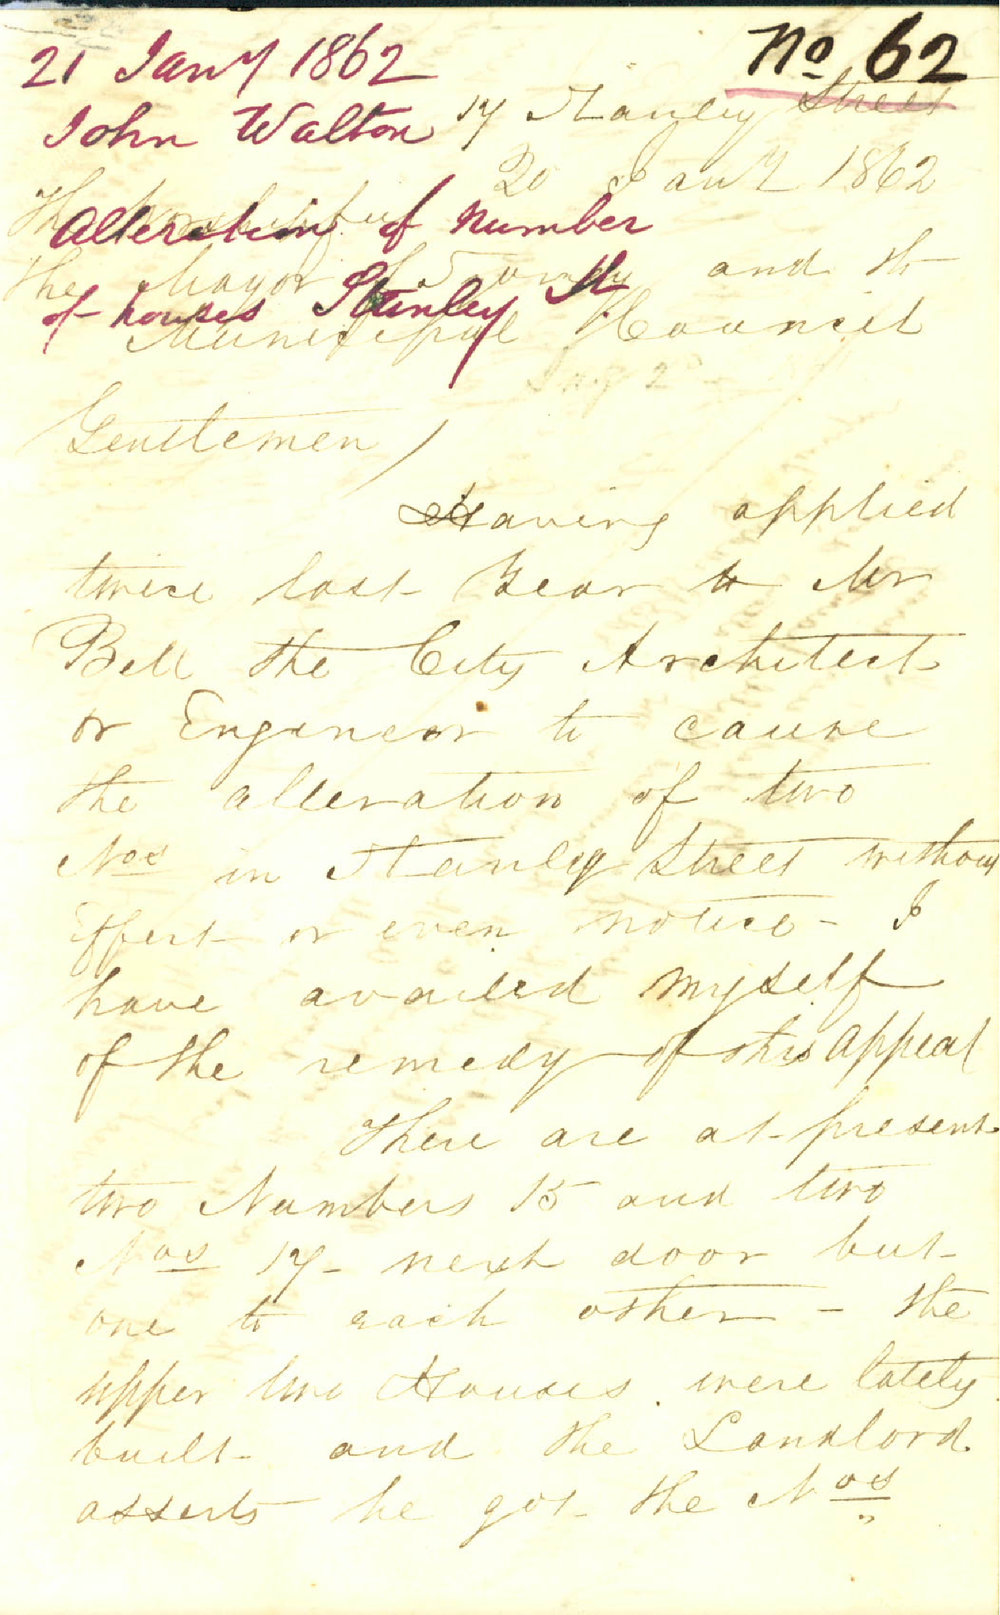 21 Jany 1862
No 62
John Walton
17 Stanley Street
20 Jany 1862
alteration of number
The Mayor of Sydney and the
of houses Stanley St
Municipal Council
Gentlemen/
Having applied
twice last Year to Mr
Bell the City Architect
or Engineer to cause
the alteration of two
Nos in Stanley Street without
Effect or even notice - I
have availed myself
of the remedy of this appeal
There are at present
two Numbers 15 and two
Nos 17 - next door but
one to each other - the
upper two Houses were lately
built and the Landlord
asserts he got the Nos